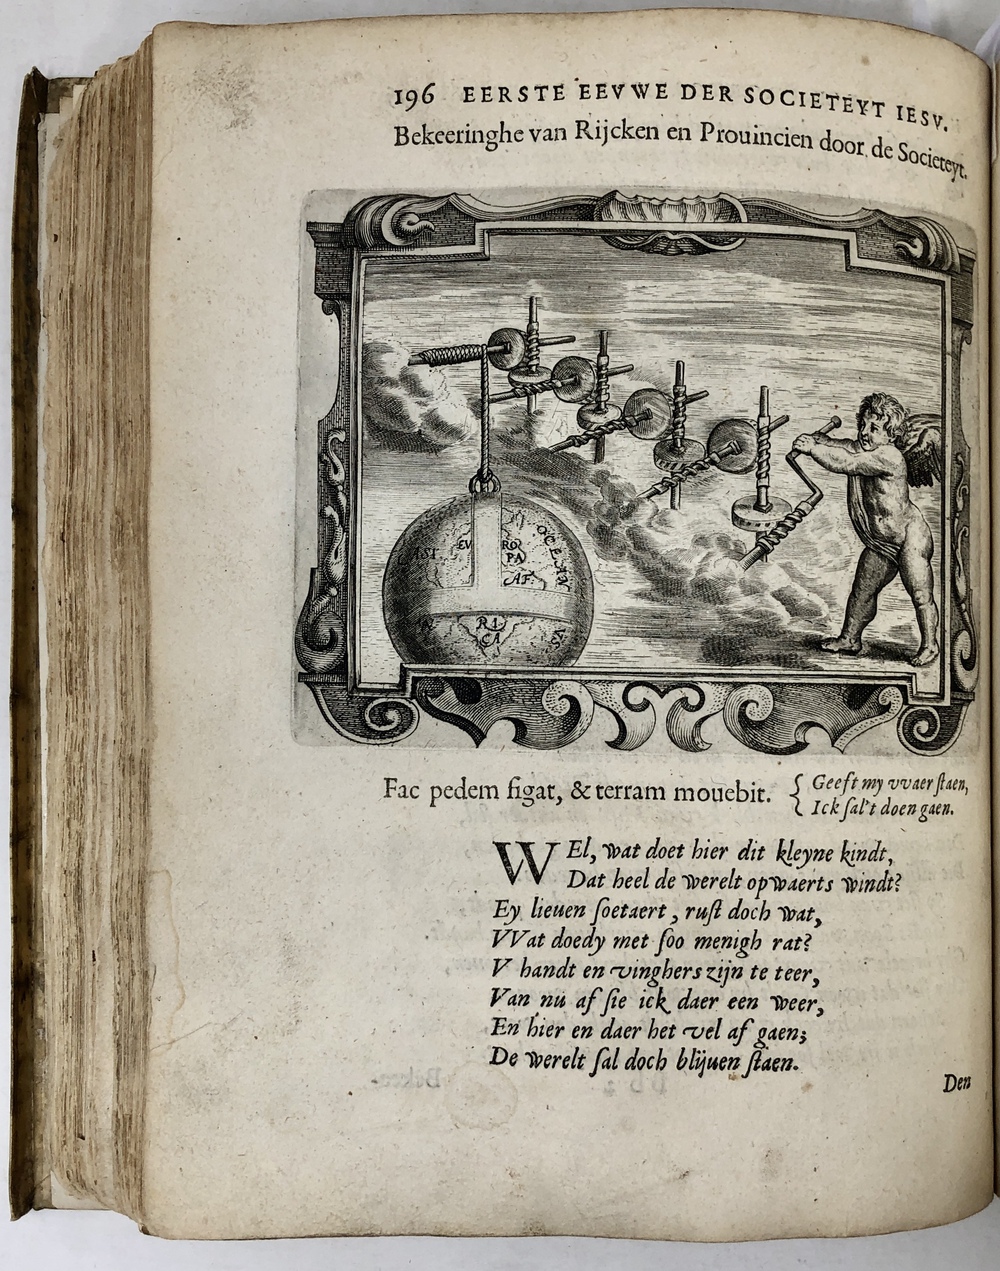 196 EERSTE EEVWE DER SOCIETEYT IESV.
Bekeeringhe van Rijcken en Prouincien door de Societeyt.
OCEAN
ASI
EV RO
PA
AF.
RI
CA
Fac pedem figat, & terram mouebit. { Geeft my vvaer ſtaen,
Ick ſal't doen gaen.
WEl, wat doet hier dit kleyne kindt,
Dat heel de werelt opwaerts windt?
Ey lieuen ſoetaert, ruſt doch wat,
VVat doedy met ſoo menigh rat?
V handt en vinghers zijn te teer,
Van nu af ſie ick daer een weer,
En hier en daer het vel af gaen;
De werelt ſal doch blijuen ſtaen.
Den